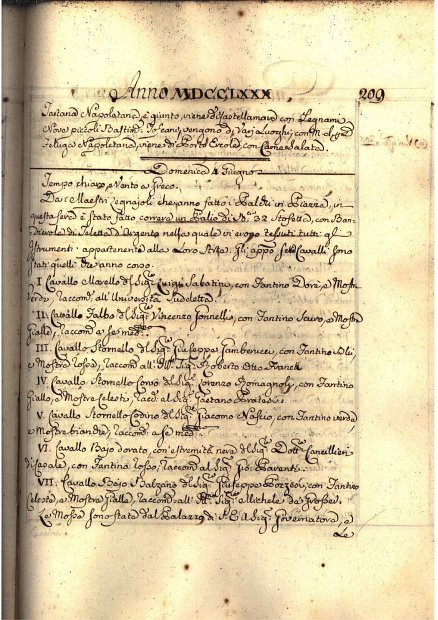 Anno MDCCLXXX 209
Tartana Napoletana, è giunta, viene di Castellamare con Legnami
Nove piccoli Bastim.ti Toscani, vengono di Varj Luoghi, con
Feluga Napoletana, viene di Porto Ercole, con Carne Salata.
Domenica 4 Giugno
Tempo chiaro, e Vento a Greco.
Dai Maestri Legnajoli che anno fatto i Baldi in Piazza, in
questa sera è stato fatto correre un Palio di Br.a 32 Stoffetta, con Ban-
dirvola di Teletta d'Argento nella quale vi erono tessuti tutti gl'
Istrumenti appartenente alla Loro Arte. Gl' appo Cavalli sono
stati quelli che anno corso.
I Cavallo Morello del Sig.r Luigi Sabatini, con Fantino Dorè, e Mostre
Verdi, raccom. all' Università
II. Cavallo Falbo del Sig.r Vincenzo Sonnelli, con Fantino Scuro, e Mostre
Gialle, raccom. a se med.mo
III. Cavallo Stornello del Sig.r Giuseppe Gamberucci, con Fantino
e Mostre Rosse, raccom. all' Ill.mo Sig.r Roberto Otto Franck
IV. Cavallo Stornello Corso del Sig.r Lorenzo Romagnoli, con Fantino
Giallo, e Mostre Celesti, racc. al Sig.r Gaetano
V. Cavallo Stornello Codino del Sig.r Giacomo con Fantino verde
e Mostre bianche, raccom. a se med.mo
VI. Cavallo Bajo dorato, con estremità nere del Sig.r Dott.r Cancellieri
di Casale, con Fantino Rosso, raccom. al Sig.r Gio. Baranti.
VII. Cavallo Bajo Balzano del Sig.r Giuseppe Pozzesi, con Fantino
Celeste, e Mostre Gialle, raccom. all' Ill.mo Sig.r Michele de
Le Mosse sono state dal Palazzo di S.E. il Sig.r Governatore, e
Le